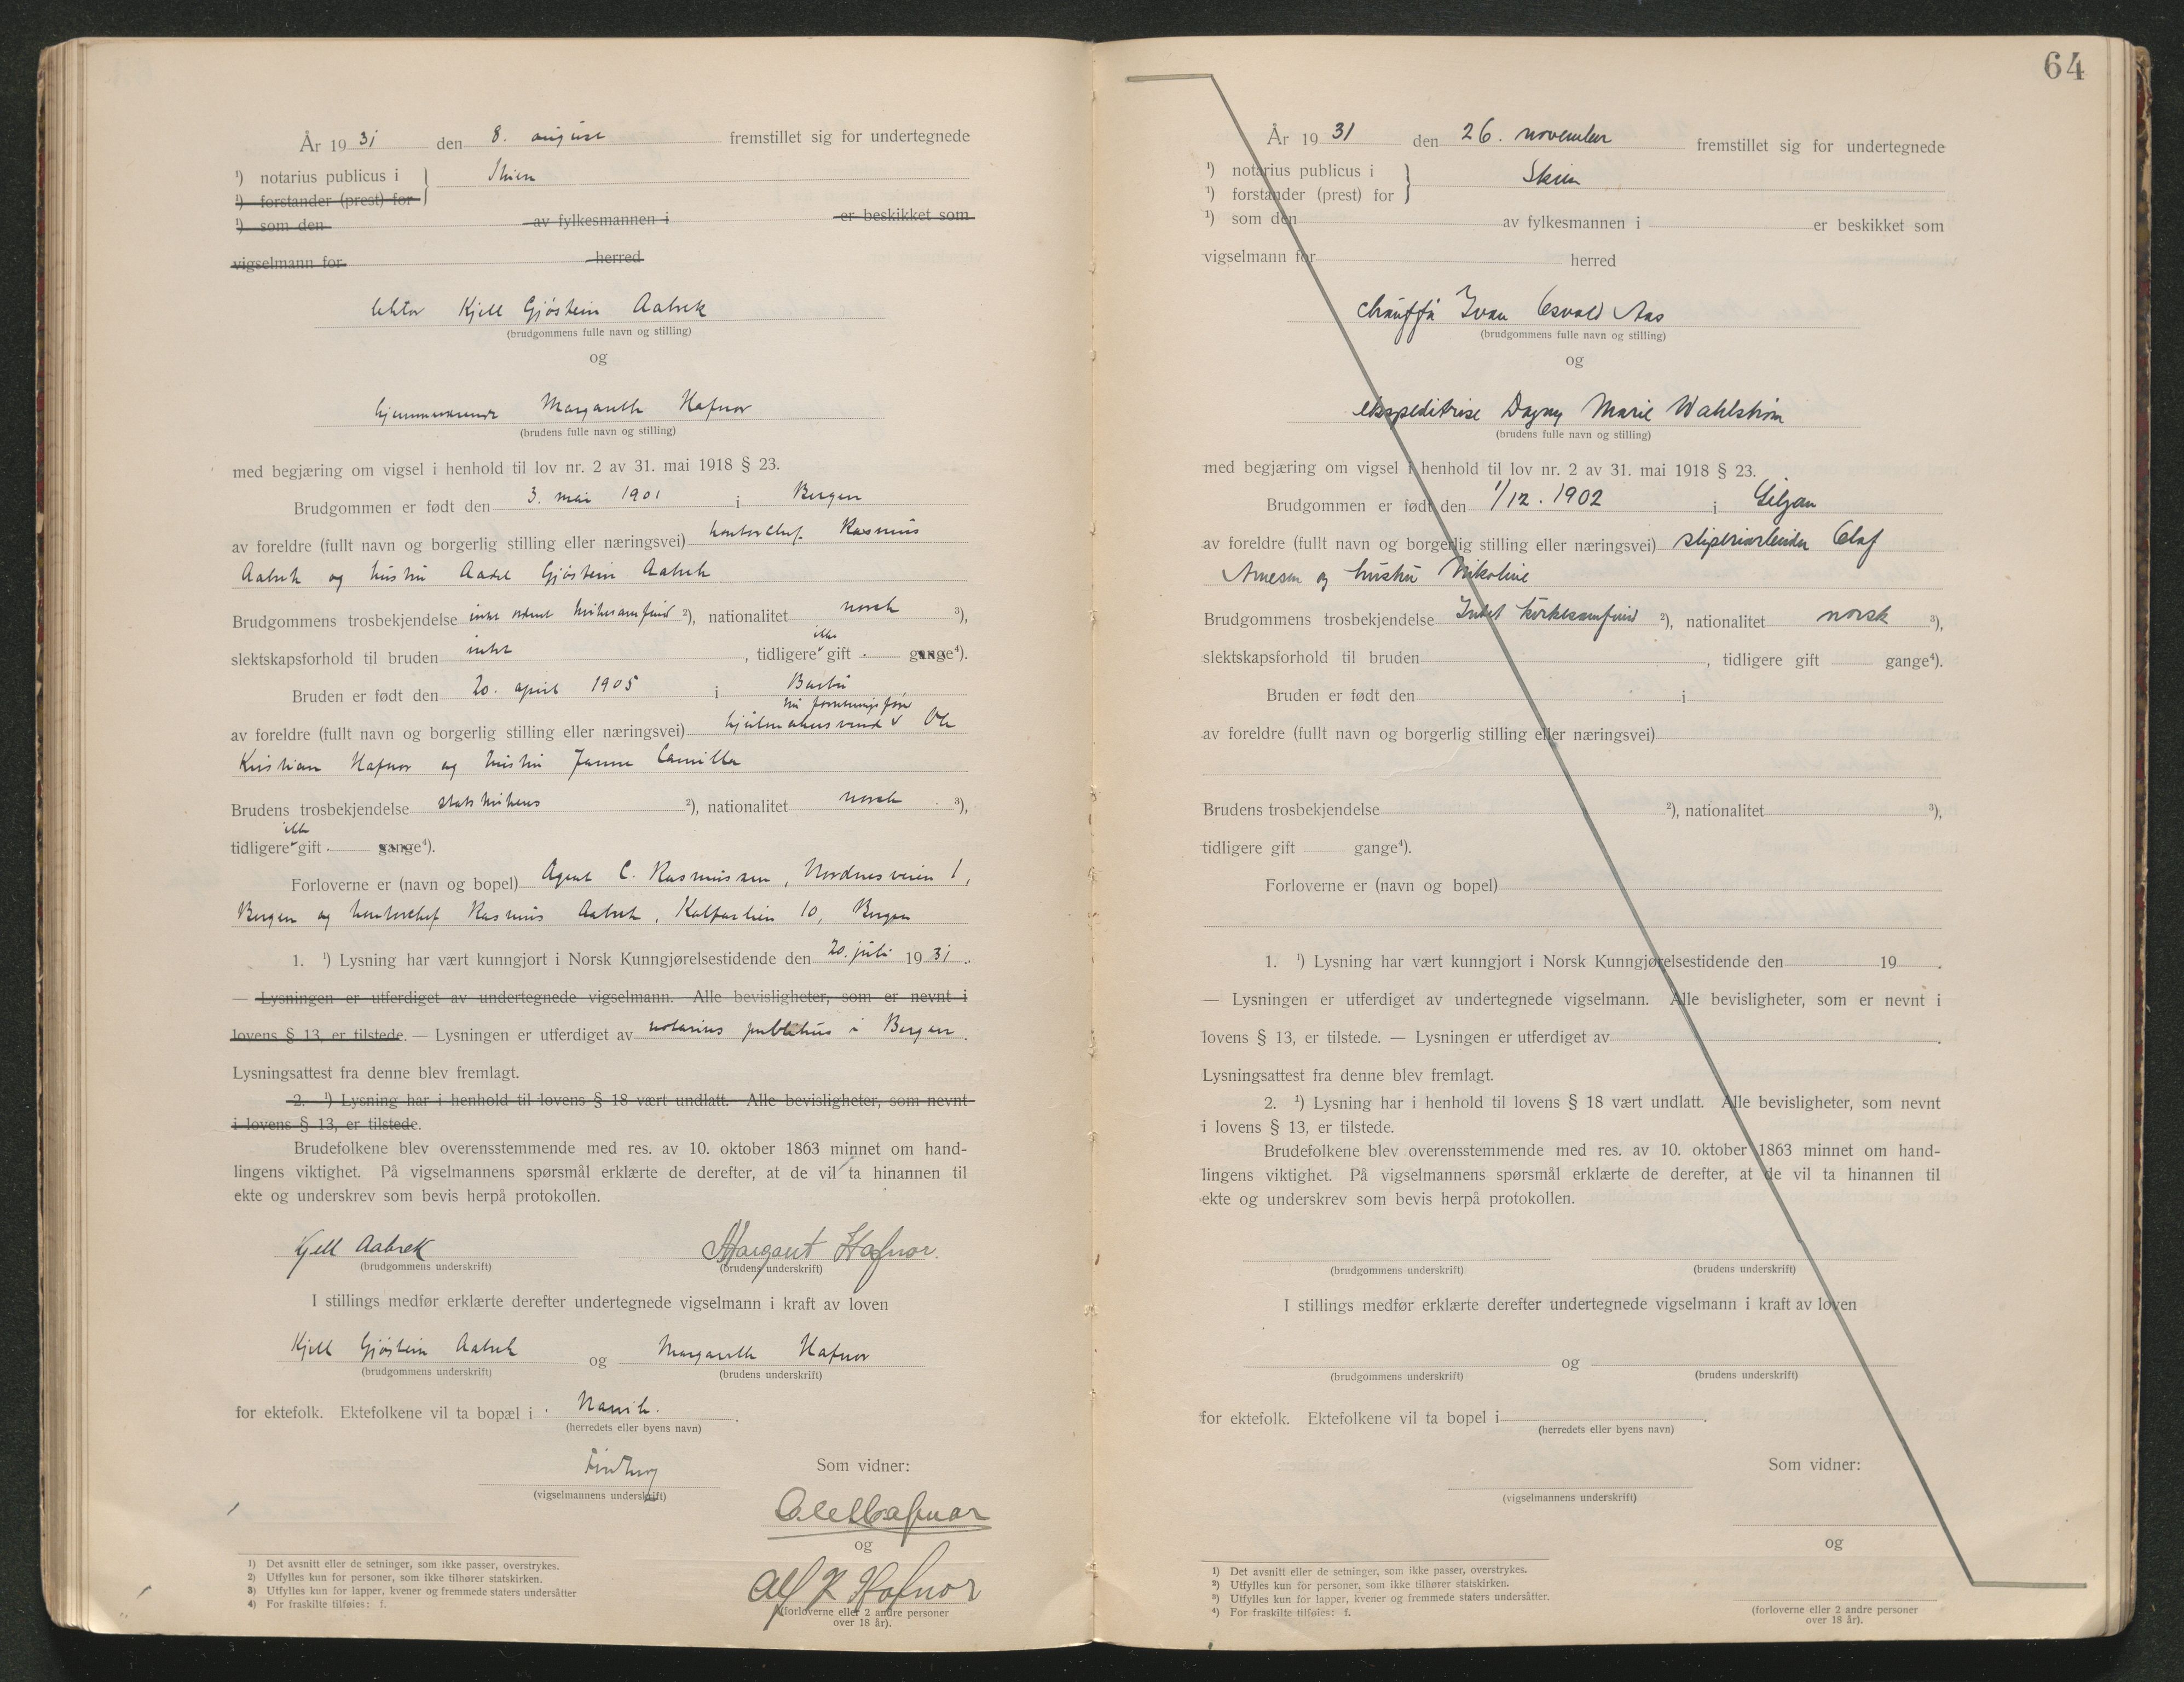 År 1931 den 8. august fremstillet sig for undertegnede
¹) notarius publicus i } Skien
¹) forstander (prest) for
¹) som den av fylkesmannen i er beskikket som
vigselmann for herred
lektor Kjell Gjøstein Aabrek
(brudgommens fulle navn og stilling)
og
hjemmeværende Margareth Hafnor
(brudens fulle navn og stilling)
med begjæring om vigsel i henhold til lov nr. 2 av 31. mai 1918 § 23.
Brudgommen er født den 3. mai 1901 i Bergen
av foreldre (fullt navn og borgerlig stilling eller næringsvei) kontorchef Rasmus
Aabrek og hustru Aadel Gjøstein Aabrek
Brudgommens trosbekjendelse intet ordnet kirkesamfund ²), nationalitet norsk ³),
slektskapsforhold til bruden intet, tidligere ikke gift gange⁴).
Bruden er født den 20. april 1905 i Barbu
nu forretningsfører
av foreldre (fullt navn og borgerlig stilling eller næringsvei) hjulmakersvend Ole
Kristian Hafnor og hustru Janne Camilla
Brudens trosbekjendelse statskirkens ²), nationalitet norsk ³),
tidligere ikke gift gange⁴).
Forloverne er (navn og bopel) Agent C. Rasmussen, Nordnesveien 1,
Bergen og kontorchef Rasmus Aabrek, Kalfarlien 10, Bergen
1. ¹) Lysning har vært kunngjort i Norsk Kunngjørelsestidende den 20. juli 1931.
— Lysningen er utferdiget av undertegnede vigselmann. Alle bevisligheter, som er nevnt i
lovens § 13, er tilstede. — Lysningen er utferdiget av notarius publikus i Bergen.
Lysningsattest fra denne blev fremlagt.
2. ¹) Lysning har i henhold til lovens § 18 vært undlatt. Alle bevisligheter, som nevnt
i lovens § 13, er tilstede.
Brudefolkene blev overensstemmende med res. av 10. oktober 1863 minnet om hand-
lingens viktighet. På vigselmannens spørsmål erklærte de derefter, at de vil ta hinannen til
ekte og underskrev som bevis herpå protokollen.
Kjell Aabrek Margaret Hafnor.
(brudgommens underskrift) (brudens underskrift)
I stillings medfør erklærte derefter undertegnede vigselmann i kraft av loven
Kjell Gjøstein Aabrek og Margareth Hafnor
(brudgommens underskrift) (brudens underskrift)
for ektefolk. Ektefolkene vil ta bopæl i Narvik.
(herredets eller byens navn)
Som vidner:
(vigselmannens underskrift)
Ole Hafnor
og
Alf K Hafnor
(forloverne eller 2 andre personer
over 18 år).
1) Det avsnitt eller de setninger, som ikke passer, overstrykes.
2) Utfylles kun for personer, som ikke tilhører statskirken.
3) Utfylles kun for lapper, kvener og fremmede staters undersåtter
4) For fraskilte tilføies: f.
64
År 1931 den 26. november fremstillet sig for undertegnede
¹) notarius publicus i } Skien
¹) forstander (prest) for
¹) som den av fylkesmannen i er beskikket som
vigselmann for herred
chauffør Ivan Osvald Aas
(brudgommens fulle navn og stilling)
og
ekspeditrise Dagny Marie Wahlstrøm
(brudens fulle navn og stilling)
med begjæring om vigsel i henhold til lov nr. 2 av 31. mai 1918 § 23.
Brudgommen er født den 1/12. 1902 i Siljan
av foreldre (fullt navn og borgerlig stilling eller næringsvei) sliperiarbeider Olaf
Arnesen og hustru Nikoline
Brudgommens trosbekjendelse Intet kirkesamfund ²), nationalitet norsk ³),
slektskapsforhold til bruden, tidligere gift gange⁴).
Bruden er født den i
av foreldre (fullt navn og borgerlig stilling eller næringsvei)
Brudens trosbekjendelse ²), nationalitet ³),
tidligere gift gange⁴).
Forloverne er (navn og bopel)
1. ¹) Lysning har vært kunngjort i Norsk Kunngjørelsestidende den 19 .
— Lysningen er utferdiget av undertegnede vigselmann. Alle bevisligheter, som er nevnt i
lovens § 13, er tilstede. — Lysningen er utferdiget av .
Lysningsattest fra denne blev fremlagt.
2. ¹) Lysning har i henhold til lovens § 18 vært undlatt. Alle bevisligheter, som nevnt
i lovens § 13, er tilstede.
Brudefolkene blev overensstemmende med res. av 10. oktober 1863 minnet om hand-
lingens viktighet. På vigselmannens spørsmål erklærte de derefter, at de vil ta hinannen til
ekte og underskrev som bevis herpå protokollen.
(brudgommens underskrift) (brudens underskrift)
I stillings medfør erklærte derefter undertegnede vigselmann i kraft av loven
og
(brudgommens underskrift) (brudens underskrift)
for ektefolk. Ektefolkene vil ta bopel i .
(herredets eller byens navn)
Som vidner:
(vigselmannens underskrift)
og
(forloverne eller 2 andre personer
over 18 år).
1) Det avsnitt eller de setninger, som ikke passer, overstrykes.
2) Utfylles kun for personer, som ikke tilhører statskirken.
3) Utfylles kun for lapper, kvener og fremmede staters undersåtter.
4) For fraskilte tilføies: f.